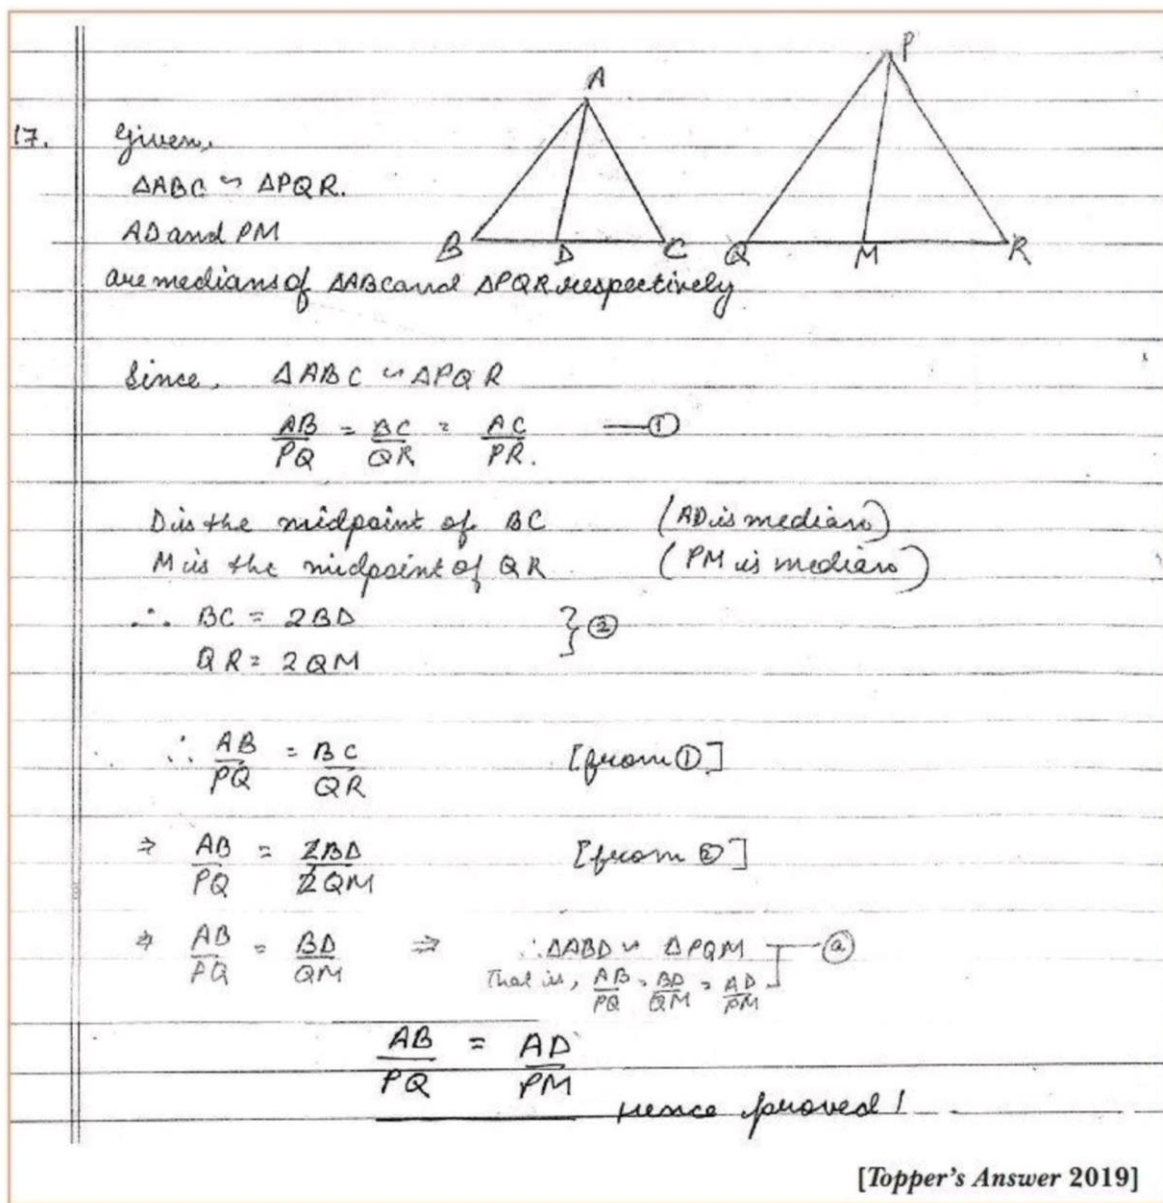 A
P
17. Given,
ΔABC ~ ΔPQR.
AD and PM
B D C Q M R
are medians of ΔABC and ΔPQR respectively
Since, ΔABC ~ ΔPQR
AB/PQ = BC/QR = AC/PR. —①
D is the midpoint of BC (AD is median)
M is the midpoint of QR (PM is median)
∴ BC = 2BD
QR = 2QM } ②
∴ AB/PQ = BC/QR [from ①]
⇒ AB/PQ = 2BD/2QM [from ②]
⇒ AB/PQ = BD/QM ⇒ ∴ΔABD ~ ΔPQM —ⓐ
That is, AB/PQ = BD/QM = AD/PM
AB/PQ = AD/PM
Hence proved!
[Topper's Answer 2019]